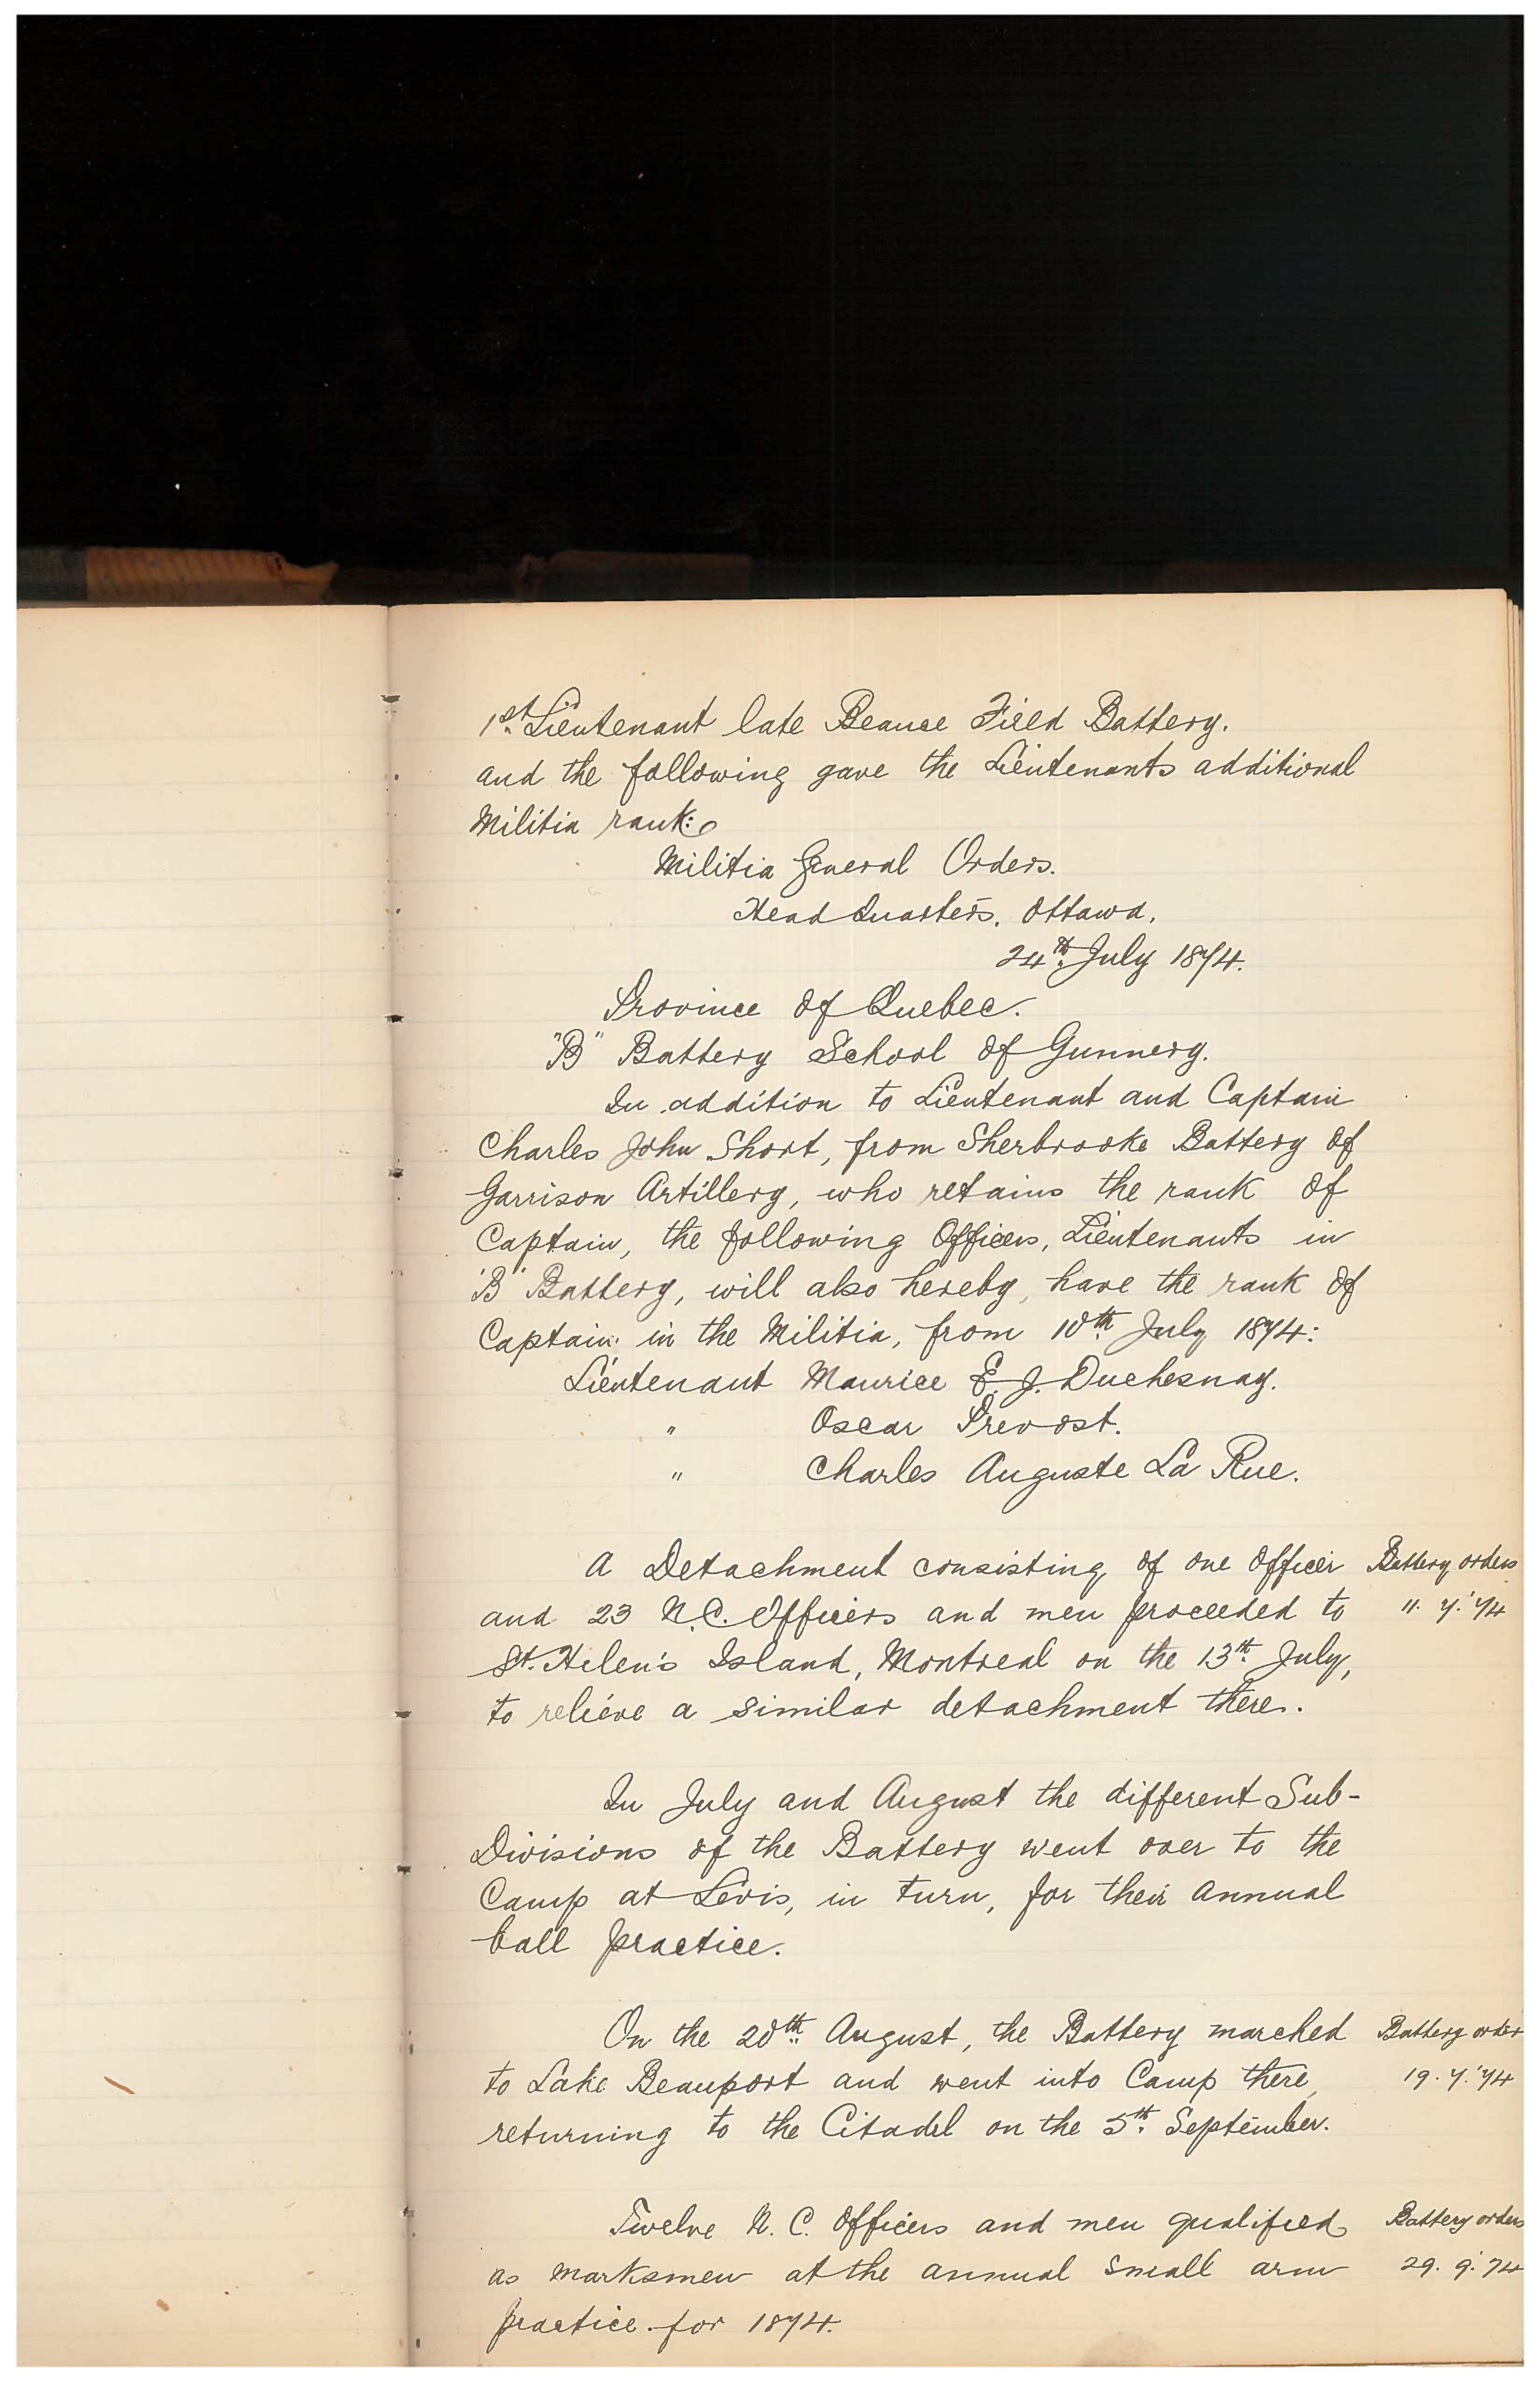 1st. Lieutenant late Beauce Field Battery.
and the following gave the Lieutenants additional
Militia rank:
Militia General Orders.
Head Quarters, Ottawa,
24th. July 1874.
Province of Quebec.
"B" Battery School of Gunnery.
In addition to Lieutenant and Captain
Charles John Short, from Sherbrooke Battery of
Garrison Artillery, who retains the rank of
Captain, the following Officers, Lieutenants in
"B" Battery, will also hereby, have the rank of
Captain in the Militia, from 10th. July 1874:
Lieutenant Maurice E. J. Duchesnay.
" Oscar Prevost.
" Charles Auguste La Rue.
A Detachment consisting of one Officer Battery orders
and 23 N.C. Officers and men proceeded to 11. 7. '74
St. Helen's Island, Montreal on the 13th. July,
to relieve a similar detachment there.
In July and August the different Sub-
Divisions of the Battery went over to the
Camp at Levis, in turn, for their annual
ball practice.
On the 20th. August, the Battery marched Battery order
to Lake Beauport and went into Camp there, 19. 7. '74
returning to the Citadel on the 5th. September.
Twelve N. C. Officers and men qualified Battery orders
as marksmen at the annual small arm 29. 9. '74
practice for 1874.